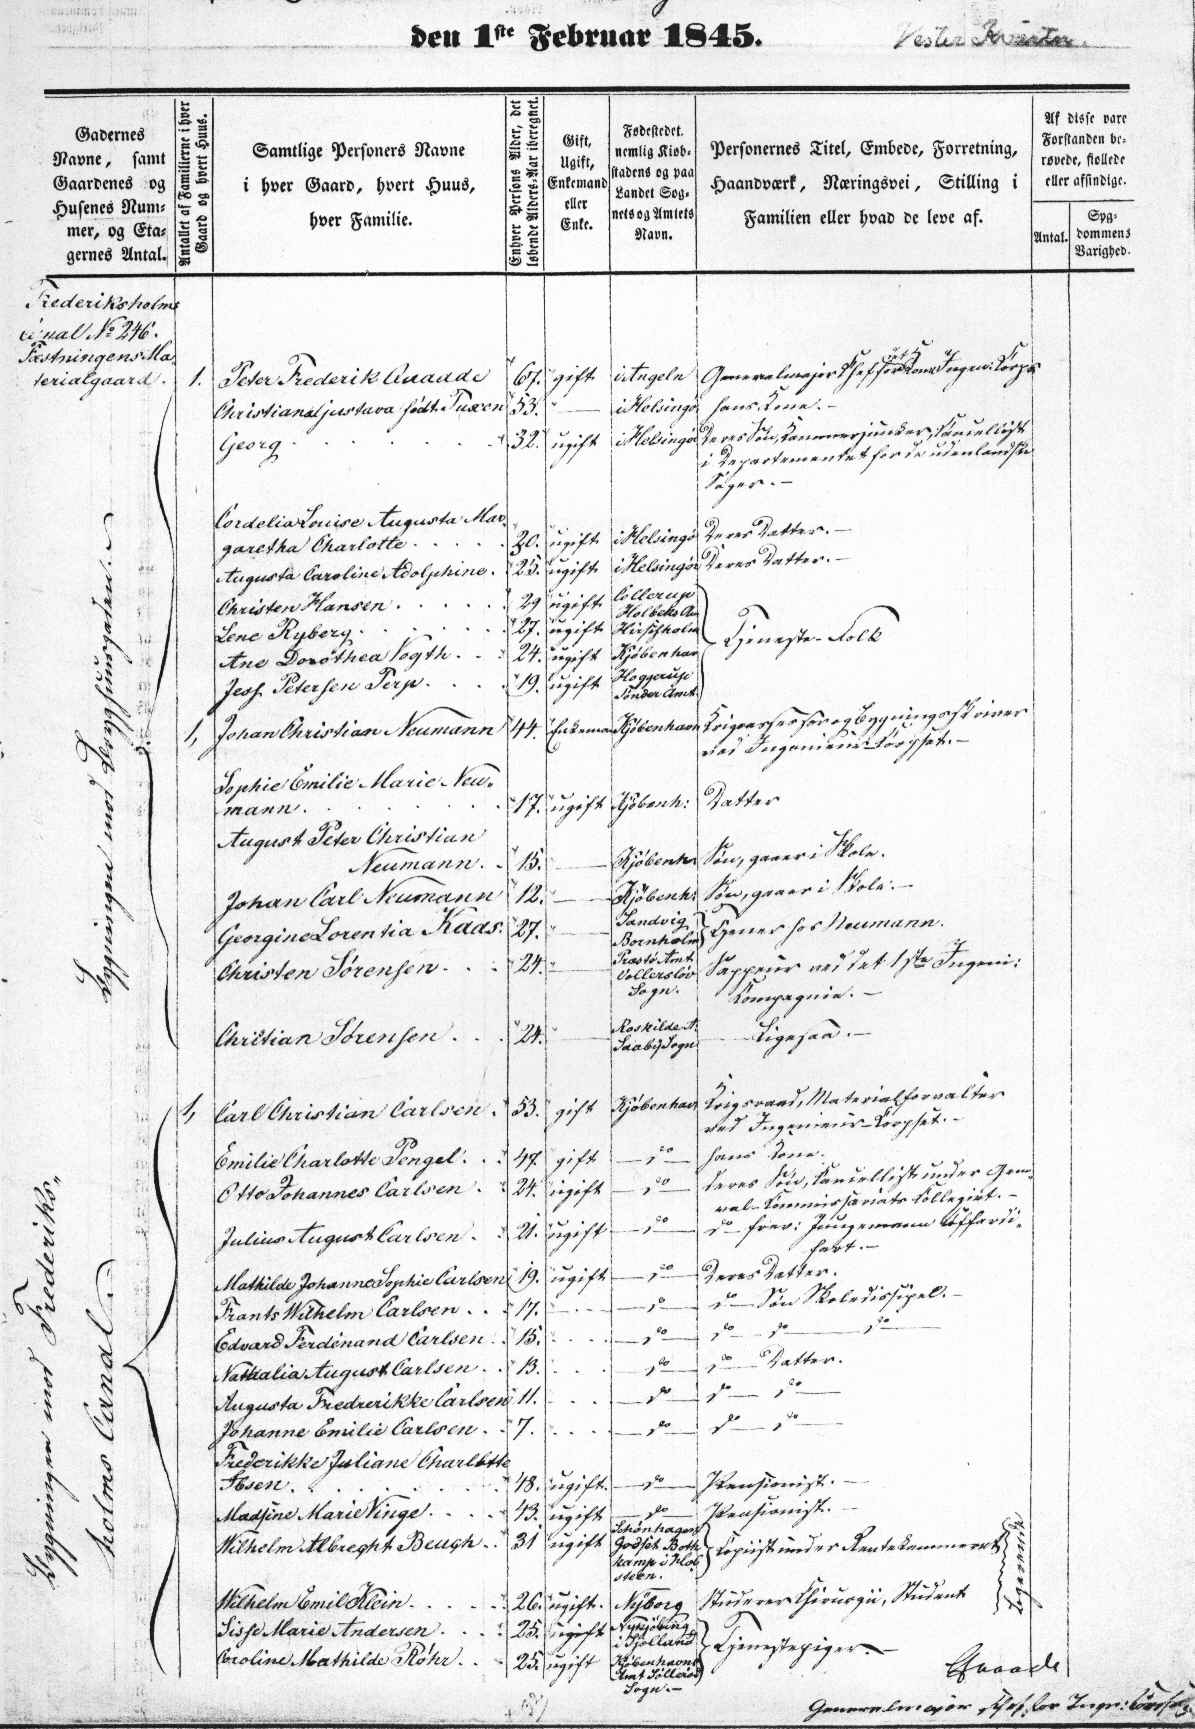 den 1ste Februar 1845.
Vester Kvarter.
Gadernes
Navne, samt
Gaardenes og
Husenes Num-
mer, og Eta-
gernes Antal.
Antallet af Familierne i hver
Gaard og hvert Huus.
Samtlige Personers Navne
i hver Gaard, hvert Huus,
hver Familie.
Enhver Persons Alder, det
løbende Alders-Aar iberegnet.
Gift,
Ugift,
Enkemand
eller
Enke.
Fødestedet.
nemlig Kiøb-
stadens og paa
Landet Sog-
nets og Amtets
Navn.
Personernes Titel, Embede, Forretning,
Haandværk, Næringsvei, Stilling i
Familien eller hvad de leve af.
Af disse vare
Forstanden be-
røvede, fjollede
eller afsindige.
Antal.
Syg-
dommens
Varighed.
Frederiksholms
Canal No 246.
Fæstningens Ma-
terialgaard.
Bygningen mod Bryghuusgaden.
1. Peter Frederik Quaade 67. gift i Angeln Generalmajor Chef for det Kong. Ingen: Corps
Christiane Gustava født Tuxen 53. " i Helsingør hans Kone.
Georg 32. ugift i Helsingør Deres Søn, Kammerjunker, Cancellist
i Departementet for de udenlandske
Sager.
Cordelia Louise Augusta Mar-
garetha Charlotte 30. ugift i Helsingør Deres Datter.
Augusta Caroline Adolphine 25. ugift i Helsingør Deres Datter.
Christen Hansen 29 ugift Collerup
Holbeks Am
Lene Ryberg 27. ugift Hirschholm Tjeneste-Folk
Ane Dorothea Vogth 24. ugift Kjøbenhavn
Jess Petersen Terp 19. ugift Hoyerup
Tønder Amt.
1, Johan Christian Neumann 44. Enkemand Kjøbenhavn Krigsassessor og Bygningsskriver
ved Ingenieur-Corpset.
Sophie Emilie Marie Neu-
mann 17. ugift Kjøbenh: Datter
August Peter Christian
Neumann 15. Kjøbenh Søn, gaaer i Skole.
Johan Carl Neumann 12. Kjøbenh: Søn, gaaer i Skole.
Georgine Lorentia Kaas 27. Sandvig
Bornholm Tjener hos Neumann.
Christen Sørensen 24. Præstø Amt
Vollerslev
Sogn. Sappeur ved det 1ste Ingeni:
Kompagnie.
Christian Sørensen 24. Roskilde A.
Saabÿ Sogn Ligesaa.
Bygningen mod Frederiks-
holms Canal
1, Carl Christian Carlsen 53. gift Kjøbenhavn Krigsraad, Materialforvalter
ved Ingenieur-Corpset.
Emilie Charlotte Pengel 47. gift do hans Kone.
Otto Johannes Carlsen 24. ugift do deres Søn, Cancellist under Gene-
ral-Kommissariats Collegiet.
Julius August Carlsen 21. ugift do do
Mathilde Johanne Sophie Carlsen 19. ugift do Deres Datter.
Frants Wilhelm Carlsen 17. do do Søn Skoledissipel.
Edvard Ferdinand Carlsen 15. do do do do
Nathalia August Carlsen 13. do do Datter.
Augusta Fredrerikke Carlsen 11. do do do
Johanne Emilie Carlsen 7. do do do
Frederikke Juliane Charlotte
Ibsen 48. ugift. do Pensionist.
Madsine Marie Vinge 43. ugift do Pensionist.
Wilhelm Albreght Beugh 31 ugift Schönhagen
Godset Both
kamp i Hol
steen. Copiist under Rentekammeret
Logerende
Wilhelm Emil Klein 26. ugift. Nyborg Studerer Chirurgii, Student
Sisse Marie Andersen 25. ugift Nykjøbing
i Sjælland Tjenestepiger.
Caroline Mathilde Röhr 25. ugift Kjøbenhavns
Amt Søllerød
Sogn.
Quaade
Generalmajor, Chef for Ingn: Corpset